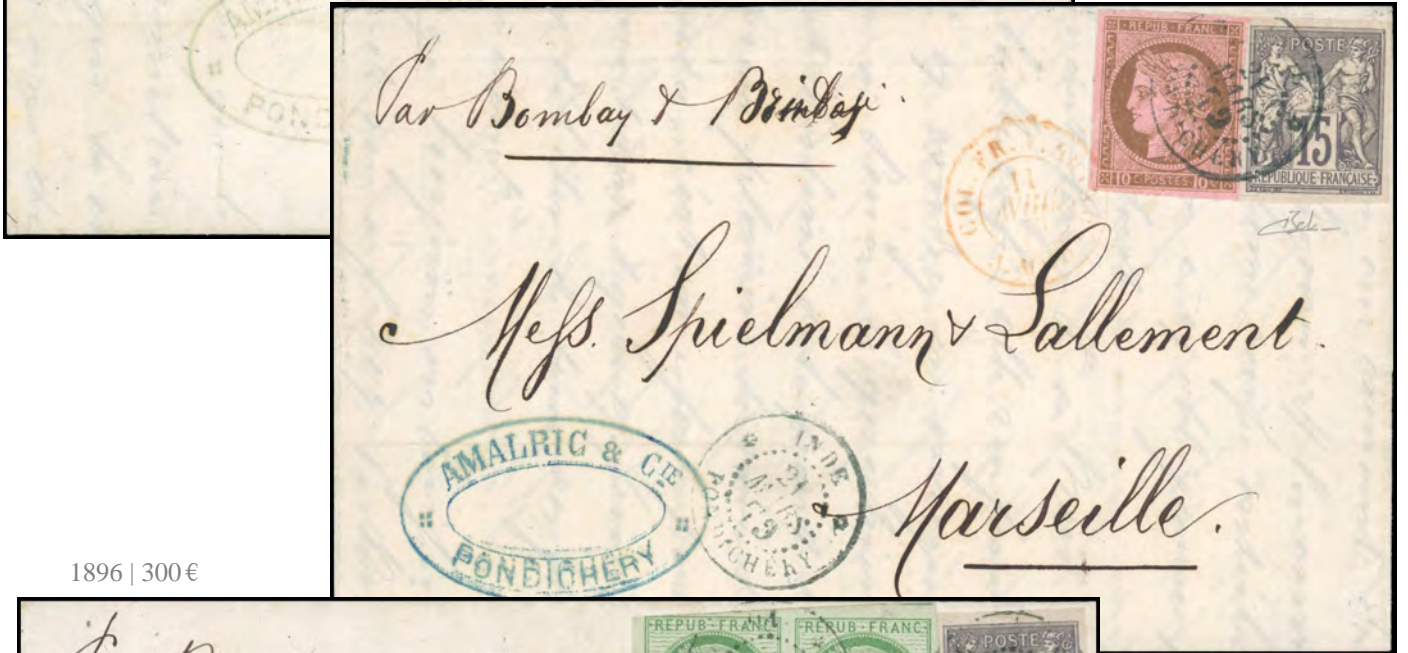 AMA
POND
Par Bombay & Brindisi.
REPUB FRANC
10 C POSTES 10 C
POSTE
15
REPUBLIQUE FRANÇAISE
COL. FR.
11
AVRIL
Mess. Spielmann & Lallement.
Marseille.
AMALRIC & CIE
PONDICHERY
INDE
21
MARS
79
PONDICHERY
1896 | 300 €
REPUB FRANC
REPUB FRANC
POSTE